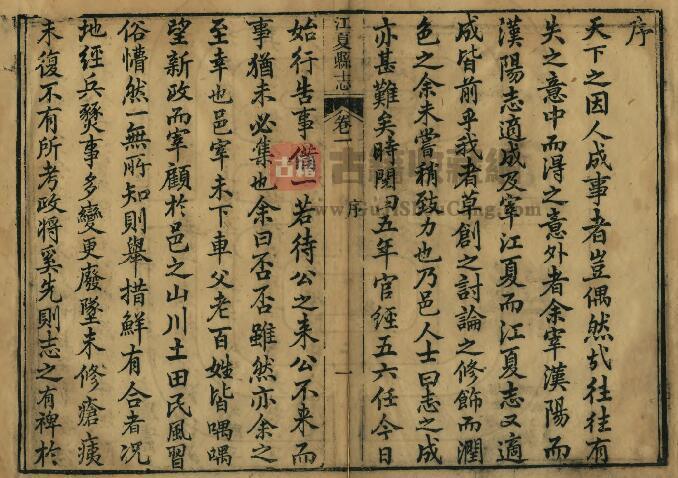 序
天下之因人成事者豈偶然哉往往有
失之意中而得之意外者余宰漢陽而
漢陽志適成及宰江夏而江夏志又適
成皆前乎我者草創之討論之修飾而潤
色之余未嘗稍致力也乃邑人士曰志之成
亦甚難矣時閱五年官經五六任今日
江夏縣志
卷一
序
一
始行告事備一若待公之来公不来而
事猶未必集也余曰否否雖然亦余之
至幸也邑宰未下車父老百姓皆喁喁
望新政而宰顧於邑之山川土田民風習
俗懵然一無所知則舉措鮮有合者况
地經兵燹事多變更廢墜未修瘡痍
未復不有所考政将奚先則志之有裨於
古籍